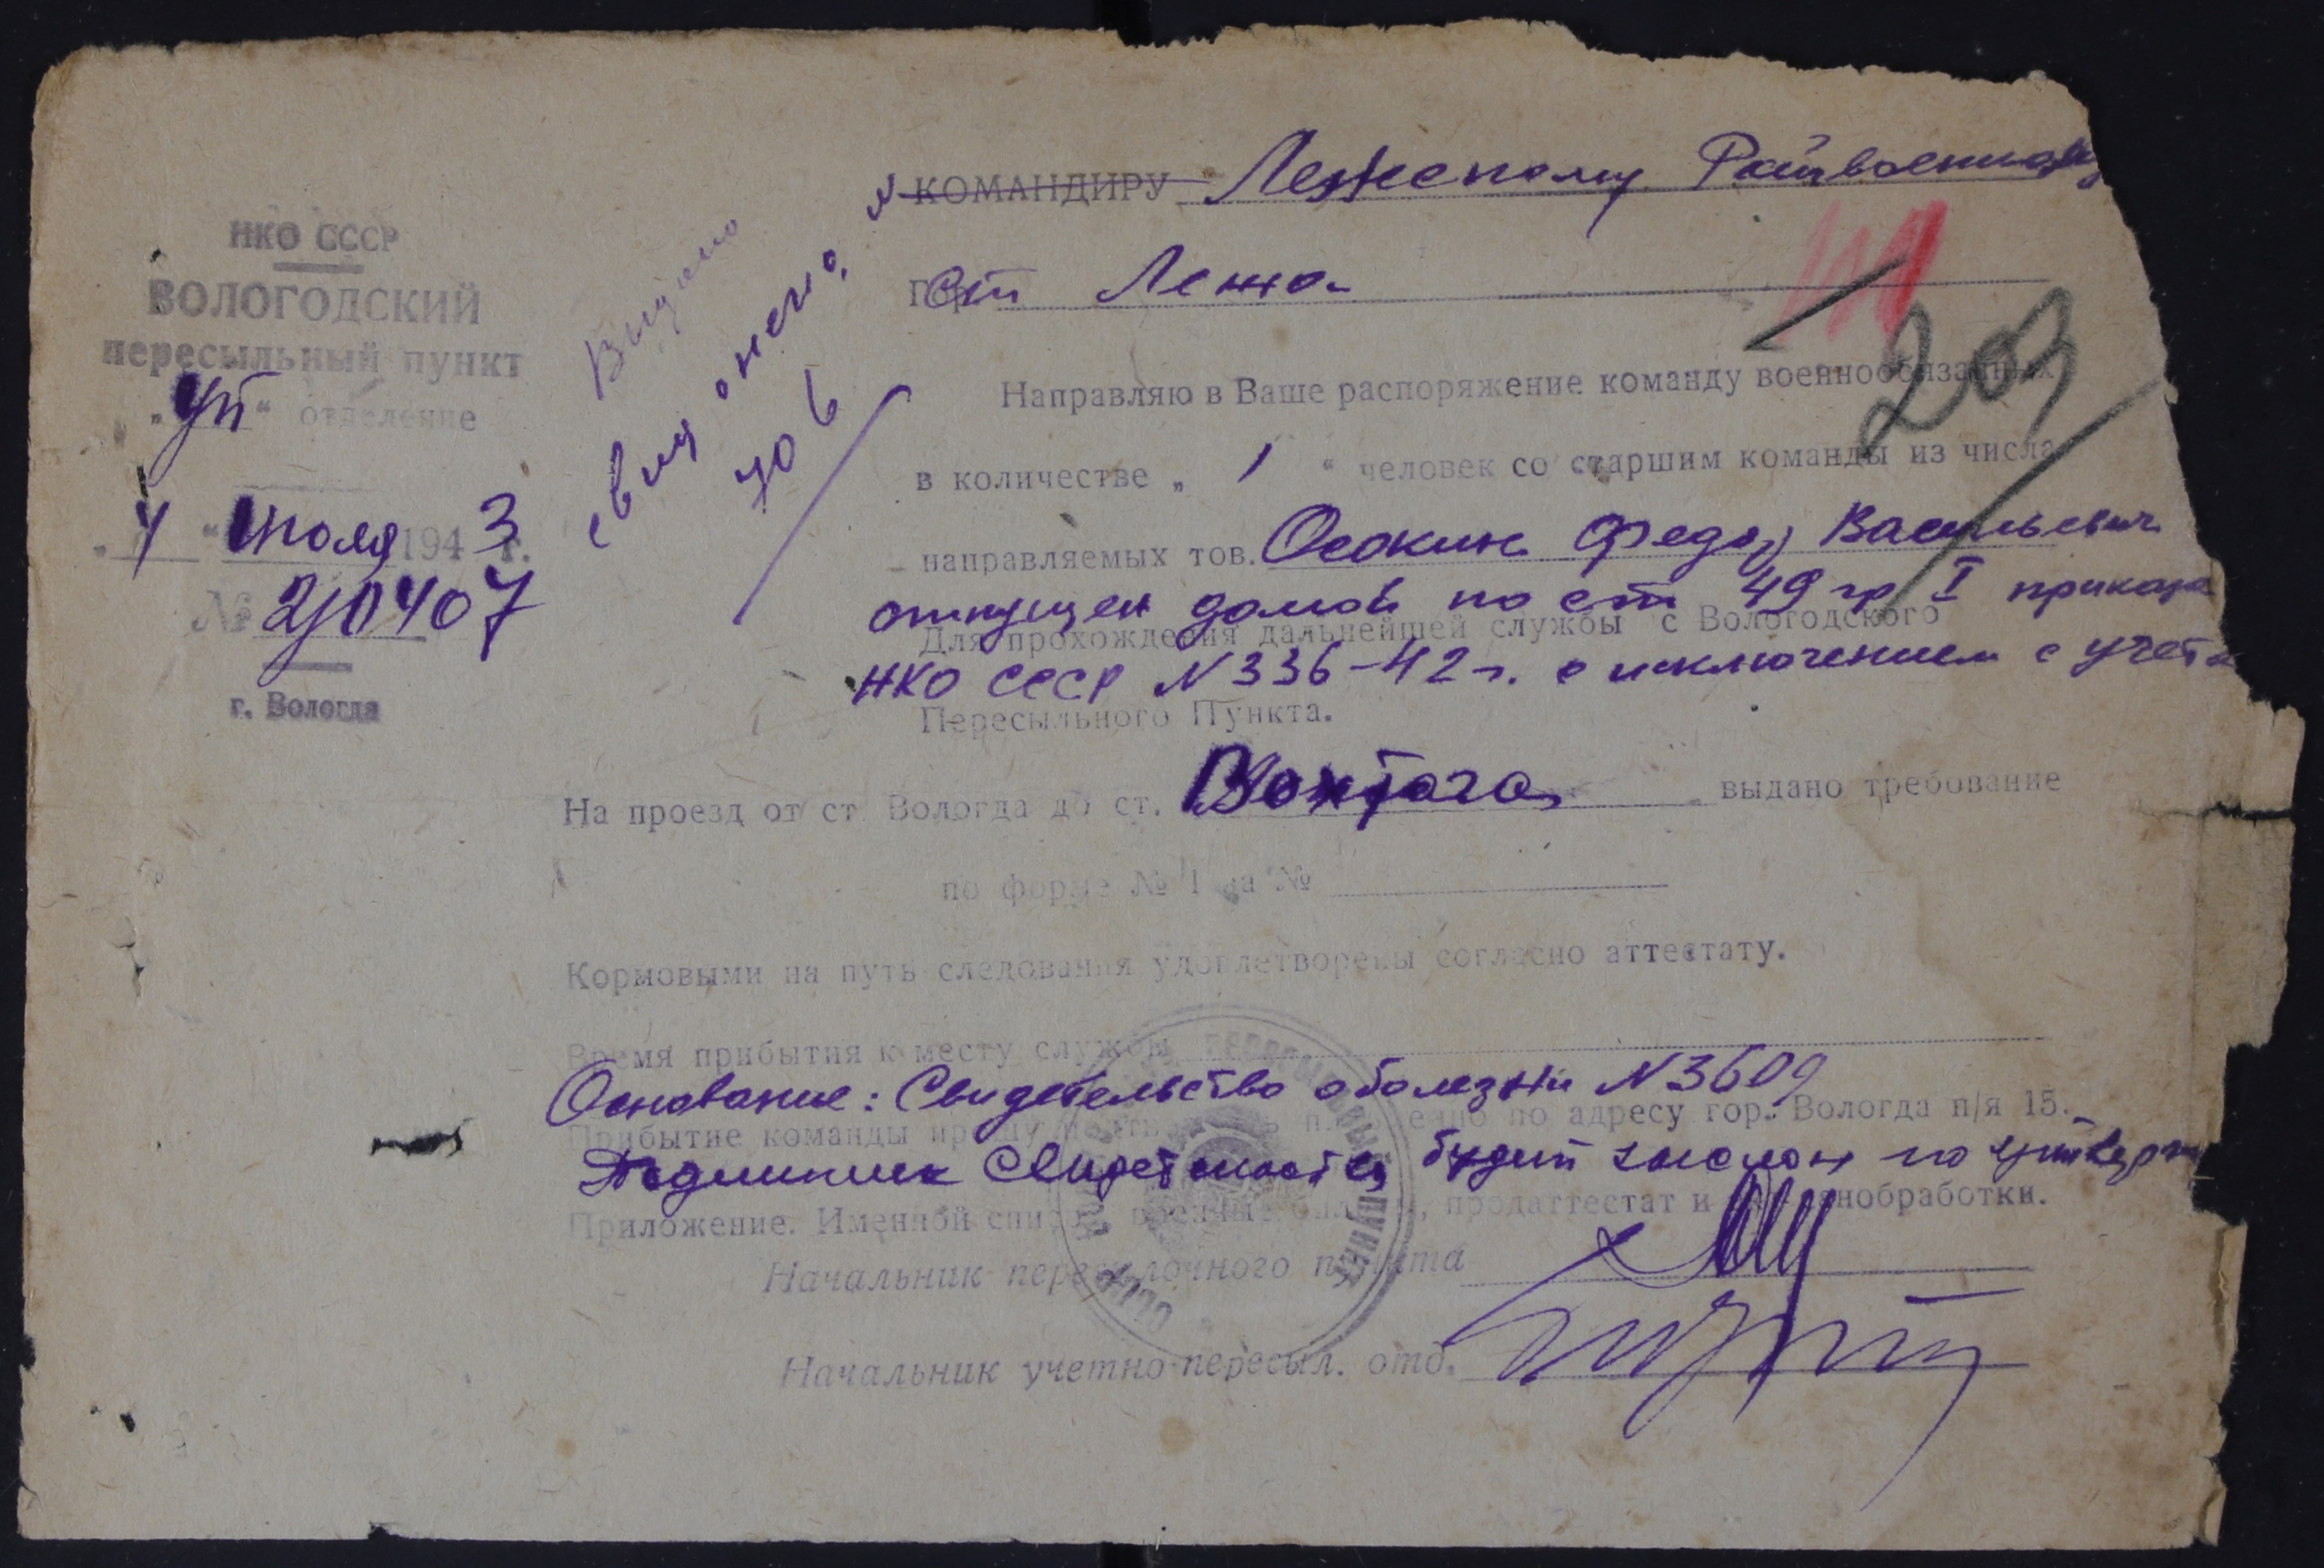 НКО СССР
ВОЛОГОДСКИЙ
пересыльный пункт
„УП“ отделение
июля 1943 г.
№
г. Вологда
Выдано
КОМАНДИРУ Лежскому Райвоенком
ст Лежа
111
203
Направляю в Ваше распоряжение команду военнообязанных
в количестве „ 1 “ человек со старшим команды из числа
направляемых тов. Осокин Федор Васильевич
отпущен домой по ст 49 гр I приказа
Для прохождения дальнейшей службы с Вологодского
НКО СССР N 336-42 г. с исключением с учета
Пересыльного Пункта.
На проезд от ст Вологда до ст. Вохтога выдано требование
по форме № 1 за №
Кормовыми на путь следования удовлетворены согласно аттестату.
Время прибытия к месту службы
Основание: Свидетельство о болезни N 3609
Прибытие команды прошу по адресу гор. Вологда п/я 15.
Подлинник Свидетельства будет выслан по утверж
Приложение. Именной список, военные билеты, продаттестат и санобработки.
Начальник пересылочного пункта
Начальник учетно-пересыл. отд.